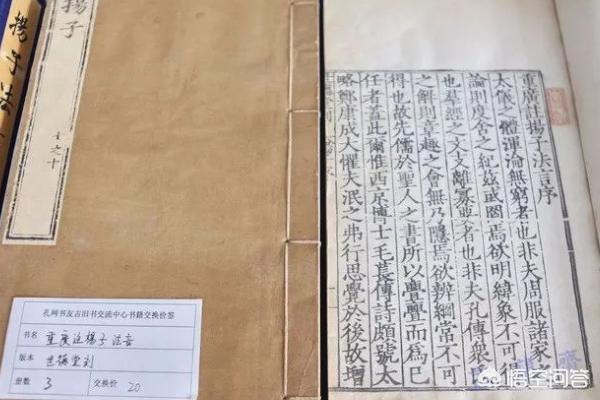 揚子法
揚子
之十
孔网书友古旧书交流中心书籍交换价签
书名 重廣注揚子法言
版本 世德堂刻
册数 3 交换价 20
重廣註揚子法言序
太儀之體渾淪無窮者也非夫周服諸家
論則度舍之紀茲或罔焉欲明緯象不可
也羣經之文支離纂要者也非夫孔傳衆
之解則旨趣之會無乃隱焉欲辨綱常不可
得也故先儒於聖人之書所以亹而爲己
任者蓋此爾惟西京博士毛萇傳詩頗號太
略鄭康成大懼夫泯之弗行思覺於後故增
悟空问答